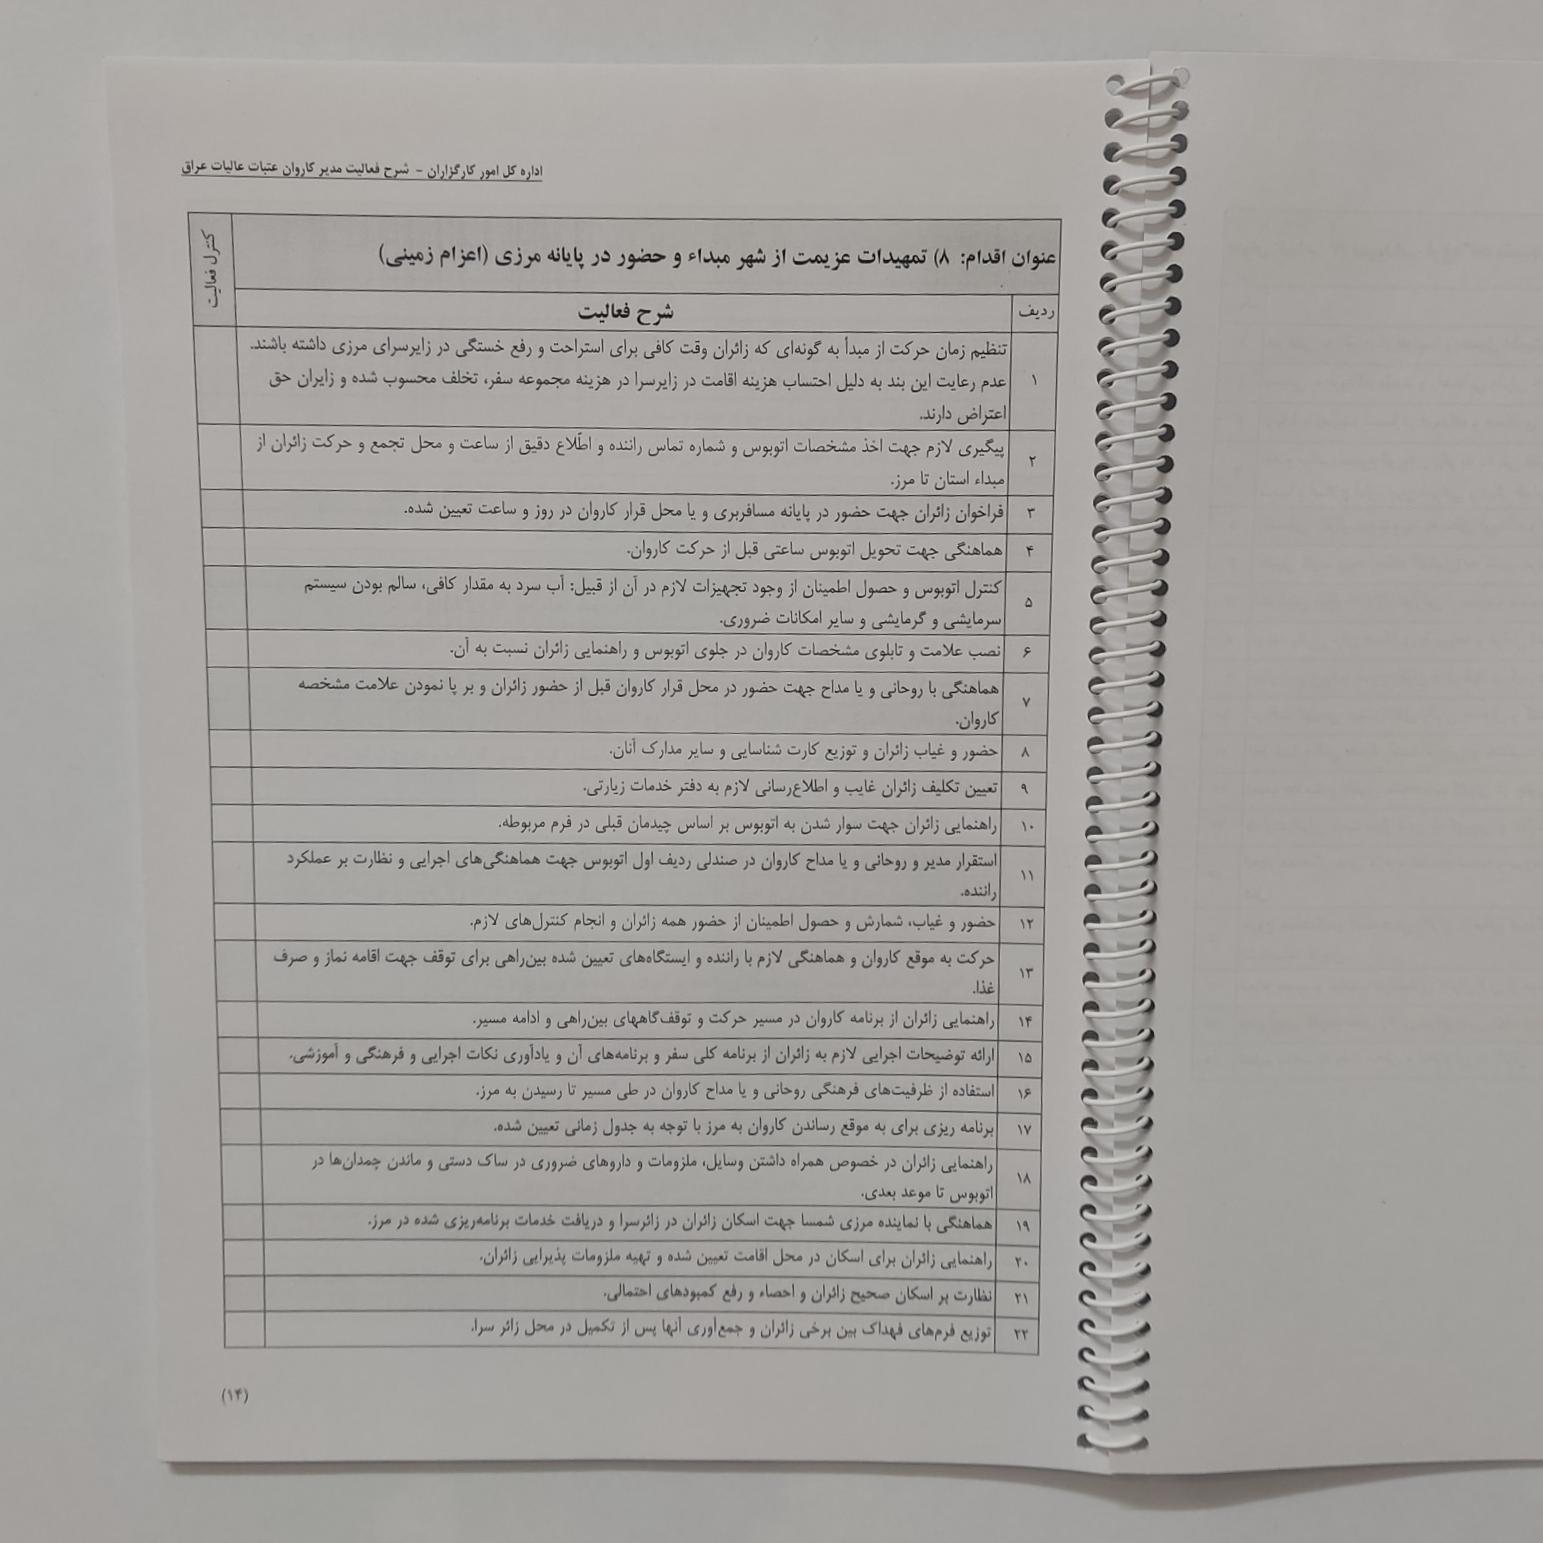 اداره کل امور کارگزاران - شرح فعالیت مدیر کاروان عتبات عالیات عراق
عنوان اقدام: ۸) تمهیدات عزیمت از شهر مبداء و حضور در پایانه مرزی (اعزام زمینی)
کنترل فعالیت
ردیف
شرح فعالیت
۱
تنظیم زمان حرکت از مبدأ به گونه‌ای که زائران وقت کافی برای استراحت و رفع خستگی در زایرسرای مرزی داشته باشند.
عدم رعایت این بند به دلیل احتساب هزینه اقامت در زایرسرا در هزینه مجموعه سفر، تخلف محسوب شده و زایران حق
اعتراض دارند.
۲
پیگیری لازم جهت اخذ مشخصات اتوبوس و شماره تماس راننده و اطّلاع دقیق از ساعت و محل تجمع و حرکت زائران از
مبداء استان تا مرز.
۳
فراخوان زائران جهت حضور در پایانه مسافربری و یا محل قرار کاروان در روز و ساعت تعیین شده.
۴
هماهنگی جهت تحویل اتوبوس ساعتی قبل از حرکت کاروان.
۵
کنترل اتوبوس و حصول اطمینان از وجود تجهیزات لازم در آن از قبیل: آب سرد به مقدار کافی، سالم بودن سیستم
سرمایشی و گرمایشی و سایر امکانات ضروری.
۶
نصب علامت و تابلوی مشخصات کاروان در جلوی اتوبوس و راهنمایی زائران نسبت به آن.
۷
هماهنگی با روحانی و یا مداح جهت حضور در محل قرار کاروان قبل از حضور زائران و بر پا نمودن علامت مشخصه
کاروان.
۸
حضور و غیاب زائران و توزیع کارت شناسایی و سایر مدارک آنان.
۹
تعیین تکلیف زائران غایب و اطلاع‌رسانی لازم به دفتر خدمات زیارتی.
۱۰
راهنمایی زائران جهت سوار شدن به اتوبوس بر اساس چیدمان قبلی در فرم مربوطه.
۱۱
استقرار مدیر و روحانی و یا مداح کاروان در صندلی ردیف اول اتوبوس جهت هماهنگی‌های اجرایی و نظارت بر عملکرد
راننده.
۱۲
حضور و غیاب، شمارش و حصول اطمینان از حضور همه زائران و انجام کنترل‌های لازم.
۱۳
حرکت به موقع کاروان و هماهنگی لازم با راننده و ایستگاه‌های تعیین شده بین‌راهی برای توقف جهت اقامه نماز و صرف
غذا.
۱۴
راهنمایی زائران از برنامه کاروان در مسیر حرکت و توقف‌گاههای بین‌راهی و ادامه مسیر.
۱۵
ارائه توضیحات اجرایی لازم به زائران از برنامه کلی سفر و برنامه‌های آن و یادآوری نکات اجرایی و فرهنگی و آموزشی.
۱۶
استفاده از ظرفیت‌های فرهنگی روحانی و یا مداح کاروان در طی مسیر تا رسیدن به مرز.
۱۷
برنامه ریزی برای به موقع رساندن کاروان به مرز با توجه به جدول زمانی تعیین شده.
۱۸
راهنمایی زائران در خصوص همراه داشتن وسایل، ملزومات و داروهای ضروری در ساک دستی و ماندن چمدان‌ها در
اتوبوس تا موعد بعدی.
۱۹
هماهنگی با نماینده مرزی شمسا جهت اسکان زائران در زائرسرا و دریافت خدمات برنامه‌ریزی شده در مرز.
۲۰
راهنمایی زائران برای اسکان در محل اقامت تعیین شده و تهیه ملزومات پذیرایی زائران.
۲۱
نظارت بر اسکان صحیح زائران و احصاء و رفع کمبودهای احتمالی.
۲۲
توزیع فرم‌های فهداک بین برخی زائران و جمع‌آوری آنها پس از تکمیل در محل زائر سرا.
(۱۴)